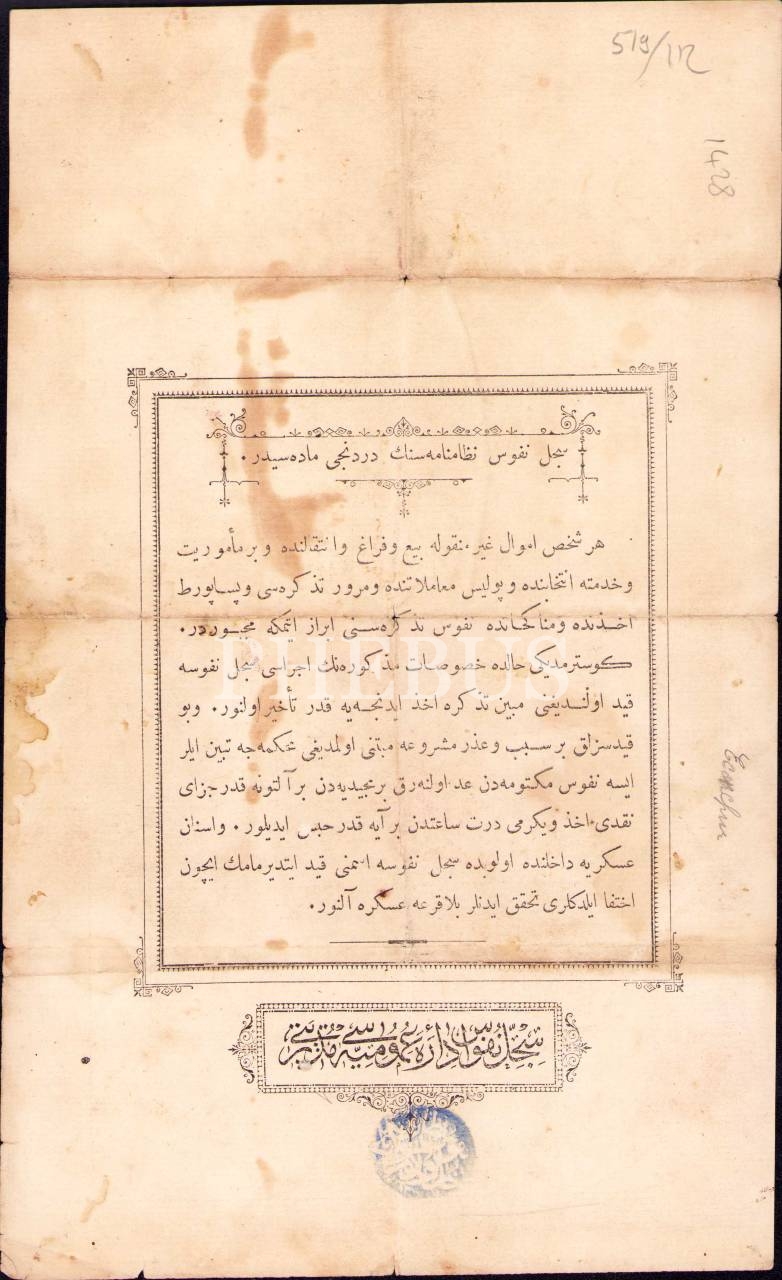 519/112
1428
سجل نفوس نظامنامه‌سنك دردنجی ماده‌سیدر .
هر شخص اموال غیر منقوله بیع وفراغ وانتقالنده وبر مأموریت
وخدمته انتخابنده وپولیس معاملاتنده ومرور تذكره‌سی وپساپورط
اخذنده ومناكحاتده نفوس تذكره‌سنی ابراز ایتمكه مجبوردر .
كوسترمدیكی حالده خصوصات مذكوره‌نك اجراسی سجل نفوسه
قید اولندیغنی مبین تذكره اخذ ایدنجه‌یه قدر تأخیر اولنور . وبو
قیدسزلق بر سبب وعذر مشروعه مبتنی اولمدیغی محكمه‌جه تبین ایلر
ایسه نفوس مكتومه‌دن عد اولنه‌رق بر مجیدیه‌دن بر آلتونه قدر جزای
نقدی اخذ ویكرمی درت ساعتدن بر آیه قدر حبس ایدیلور . واسنان
عسكریه داخلنده اولوبده سجل نفوسه اسمنی قید ایتدیرمامك ایچون
اختفا ایلدكلری تحقق ایدنلر بلا قرعه عسكره آلنور .
سجل نفوس اداره عمومیه‌سی
PHEBUS